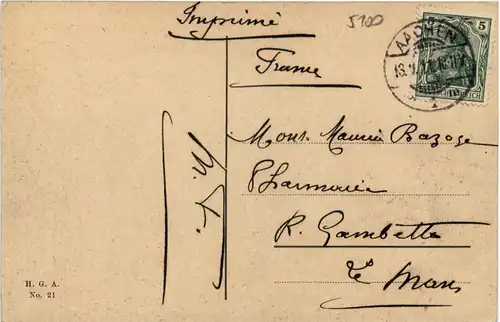 Imprimé
5100
5
AACHEN
France
Mons. Maurice Bazoge
Pharmacie
R. Gambetta
Le Mans
H. G. A.
No. 21